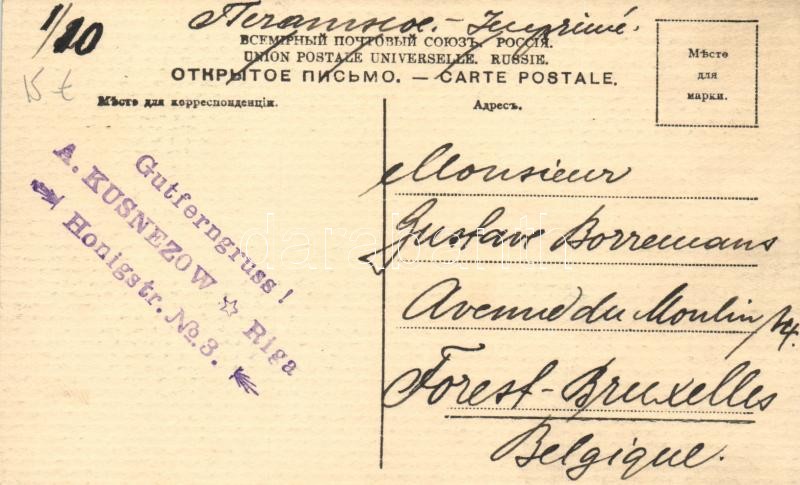 1/20
Печатное. - Imprimé.
ВСЕМІРНЫЙ ПОЧТОВЫЙ СОЮЗЪ. РОССІЯ.
UNION POSTALE UNIVERSELLE. RUSSIE.
ОТКРЫТОЕ ПИСЬМО. — CARTE POSTALE.
Мѣсто
для
марки.
15 €
Мѣсто для корреспонденціи.
Адресъ.
Gutferngruss!
A. KUSNEZOW ☆ Riga
Honigstr. No. 3.
Monsieur
Gustave Borremans
Avenue du Moulin 14.
Forest-Bruxelles
Belgique.
darabanth